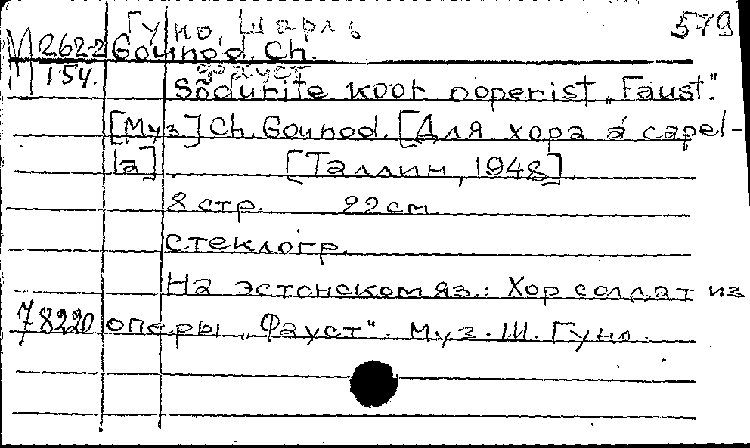 Гуно, Шарль 579
М 262-2 Gounod, Ch.
154. Фауст
Sõdurite koor ooperist „Faust".
[Муз] Ch. Gounod. [Для хора a capel-
la]. [Таллин, 1948]
8 стр. 22 см
стеклогр.
На эстонском яз.: Хор солдат из
78220 оперы „Фауст". Муз. Ш. Гуно.